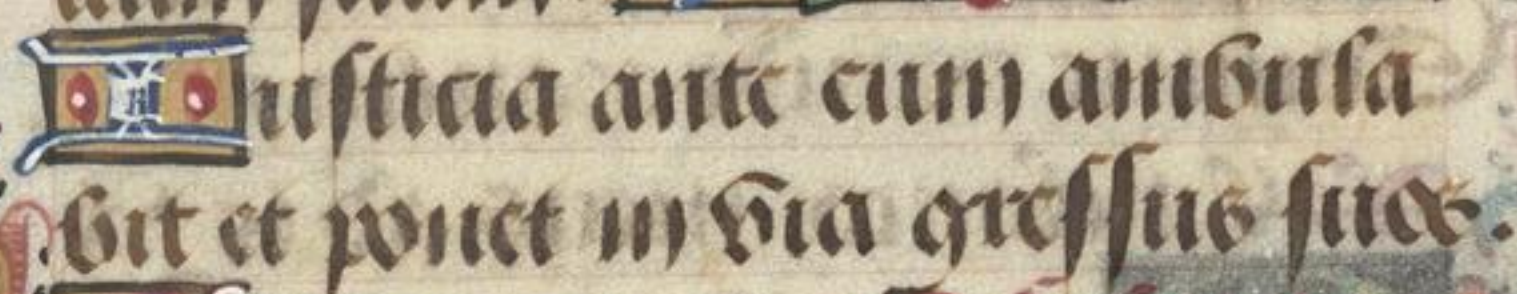 Iusticia ante eum ambula
bit et ponet in via gressus suos.